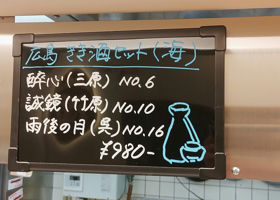 広島 きき酒セット(海)
酔心(三原) NO.6
誠鏡(竹原) NO.10
雨後の月(呉) NO.16
¥980-